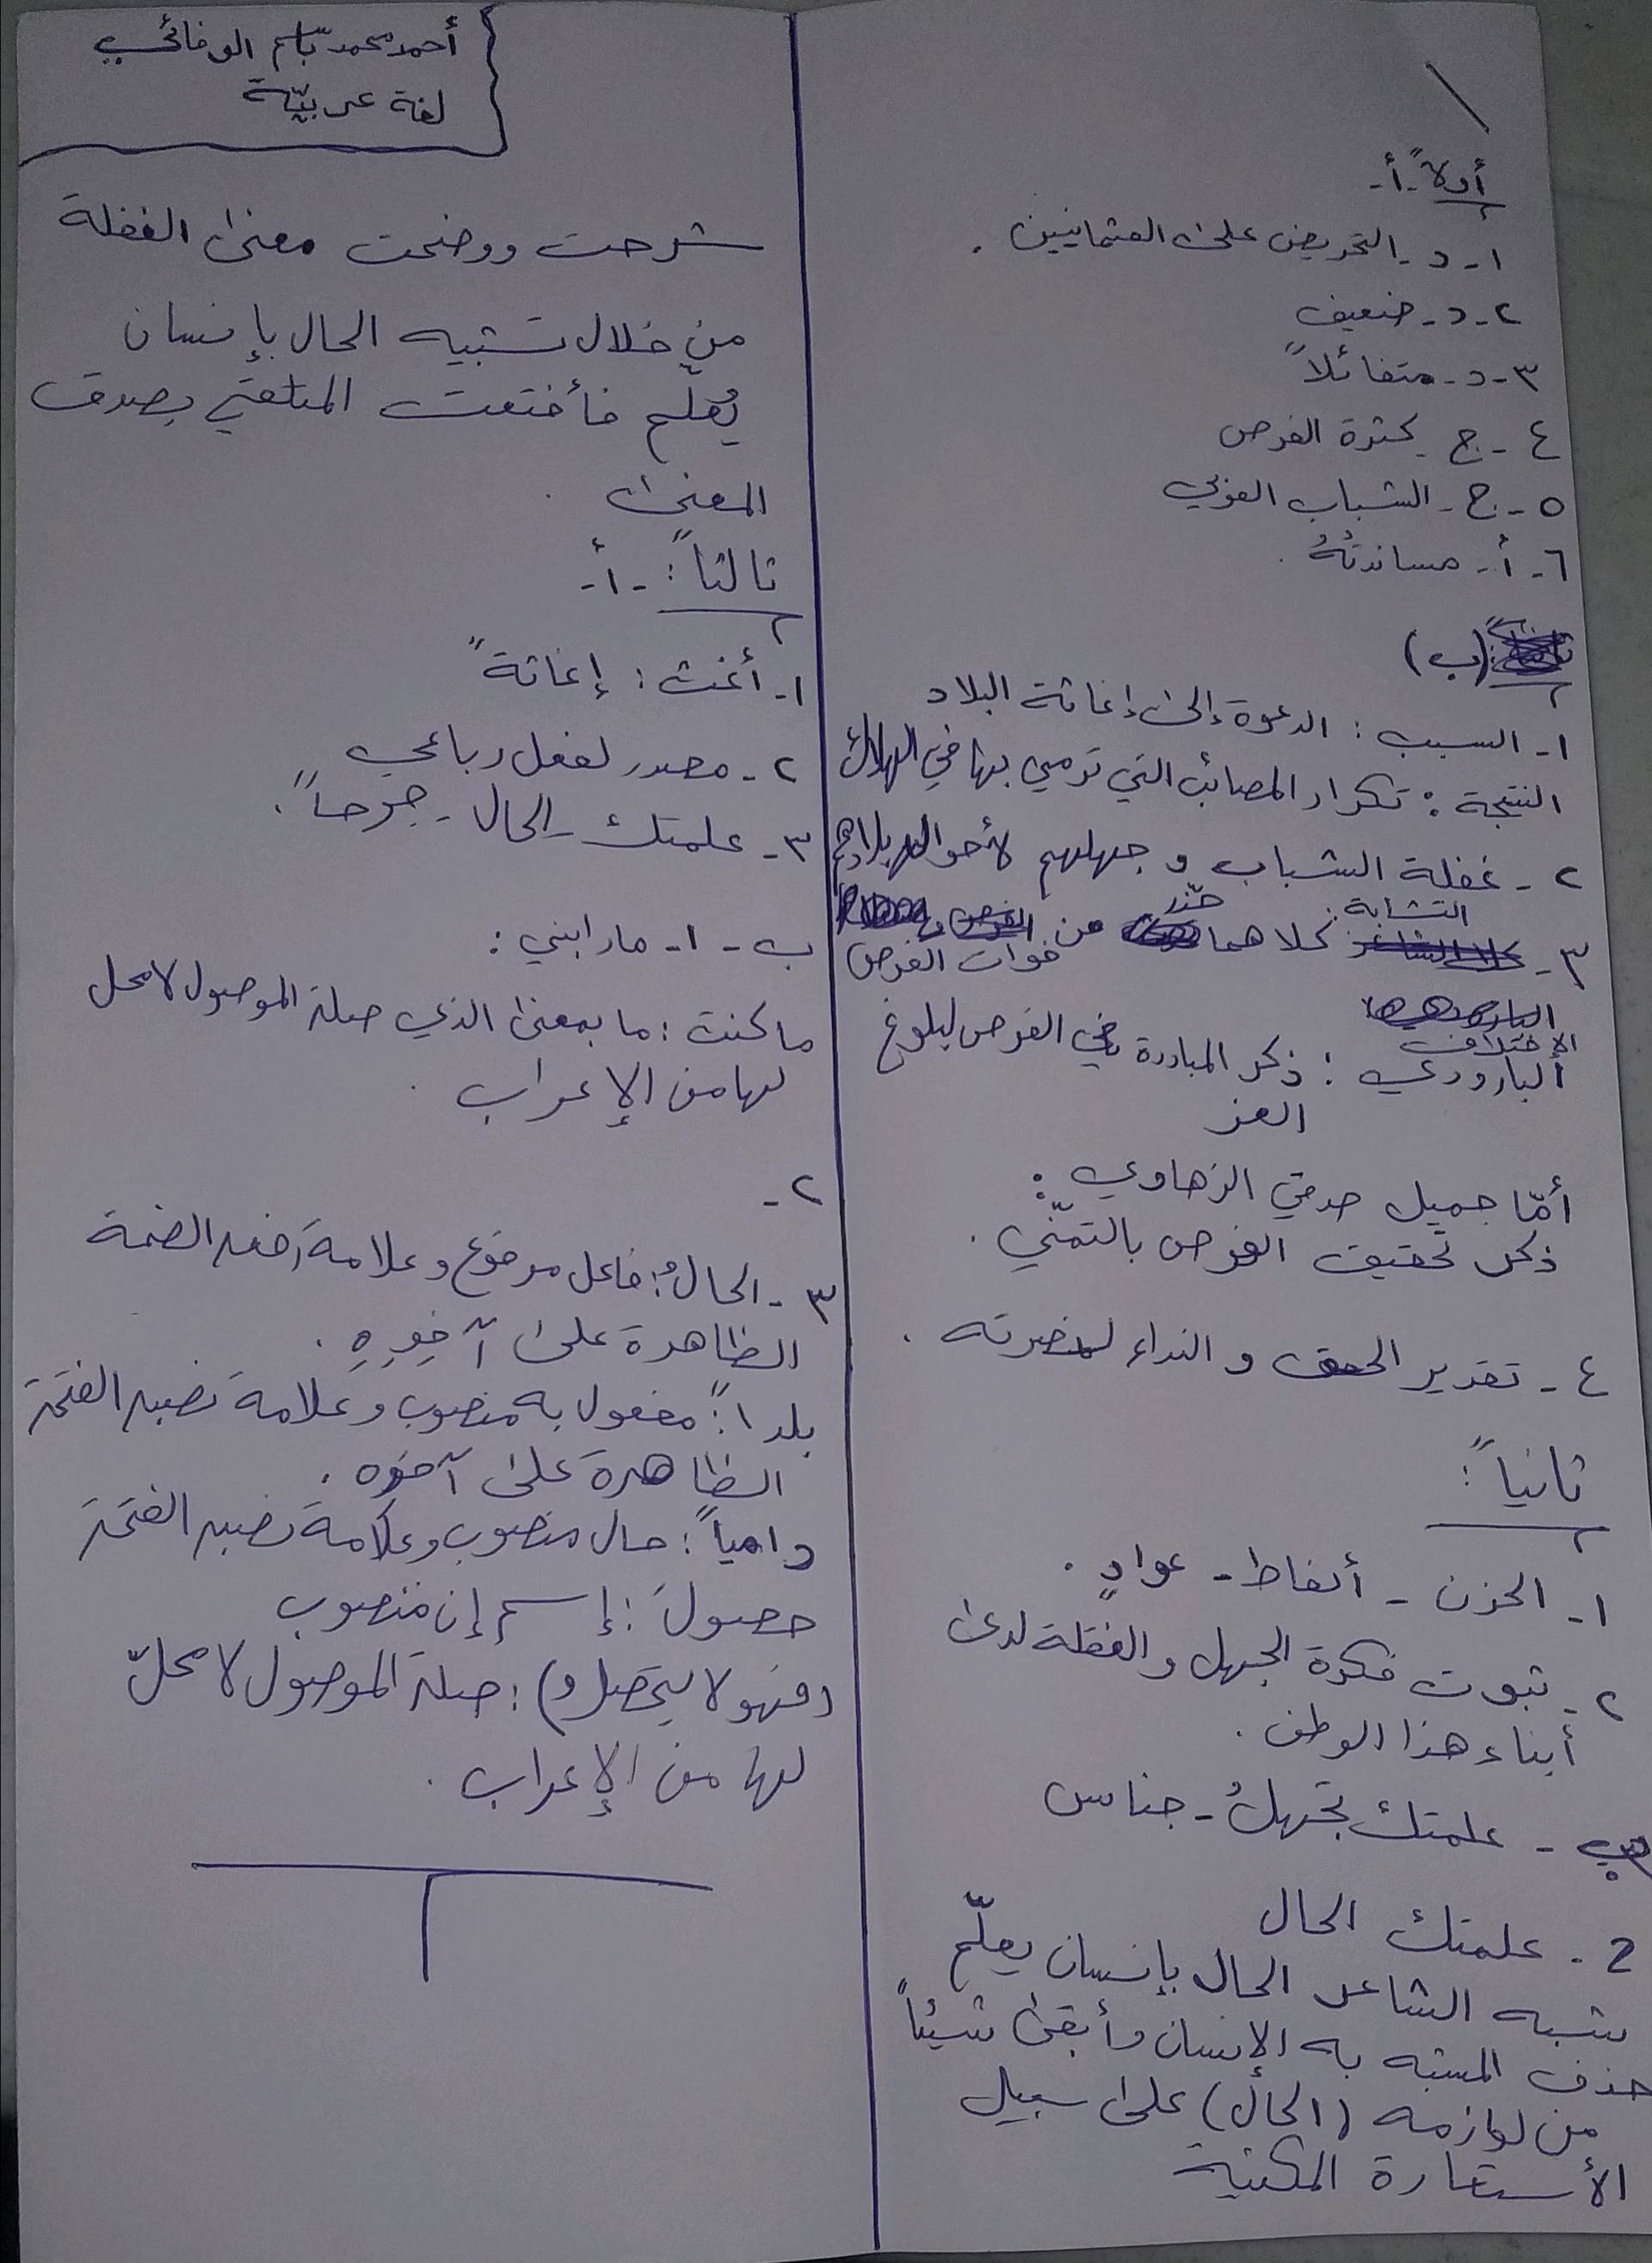 أولاً - أ -
١ - د - التحريض على العثمانيين .
٢ - د - ضعيف
٣ - د - متفائلاً
٤ - ج - كثرة الفرص
٥ - ج - الشباب العربي
٦ - أ - مساندتُهُ .
(ب)
١ - السبب : الدعوة إلى إغاثة البلاد
النتيجة : تكرار المصائب التي ترمي بها في الهلاك
٢ - غفلة الشباب و جهلهم لأحوال بلادهم
٣ - التشابة : كلاهما حذّر من فوات الفرص
الاختلاف
البارودي : ذكر المبادرة في الفرص لبلوغ
العز
أمّا جميل صدقي الزهاوي :
ذكر تحقيق الفرص بالتمنّي .
٤ - تقدير الحق و النداء لنصرته .
ثانياً :
١ - الحزن - ألفاظ - عوادٍ .
٢ - ثبوت فكرة الجهل والغفلة لدى
أبناء هذا الوطن .
ب - علمتك تجهلُ - جناس
2 - علمتك الحال
شبه الشاعر الحال بإنسان يعلّم
حذف المشبه به الإنسان وأبقى شيئاً
من لوازمه (الحال) على سبيل
الأستعارة المكنية
أحمد محمد بسّام الوفائي
لغة عربيّة
شرحت ووضحت معنى الغفلة
من خلال تشبيه الحال بإنسان
يُعلّم فأقنعت المتلقي بصدق
المعنى .
ثالثاً : - أ -
١ - أغث : إغاثةً
٢ - مصدر لفعل رباعي
٣ - علمتك - الحال - جرحاً .
ب - ١ - مارابني :
ما كنت : ما بمعنى الذي صلة الموصول لا محل
لها من الإعراب .
٢ -
٣ - الحالُ : فاعل مرفوع وعلامة رفعه الضمة
الظاهرة على آخِرِهِ .
بلداً : مفعول به منصوب وعلامة نصبه الفتحة
الظاهرة على آخره .
دامياً : حال منصوب وعلامة نصبه الفتحة
حصولَ : إسم إن منصوب
(فهو لا يحصل) : صلة الموصول لا محلّ
لها من الإعراب .